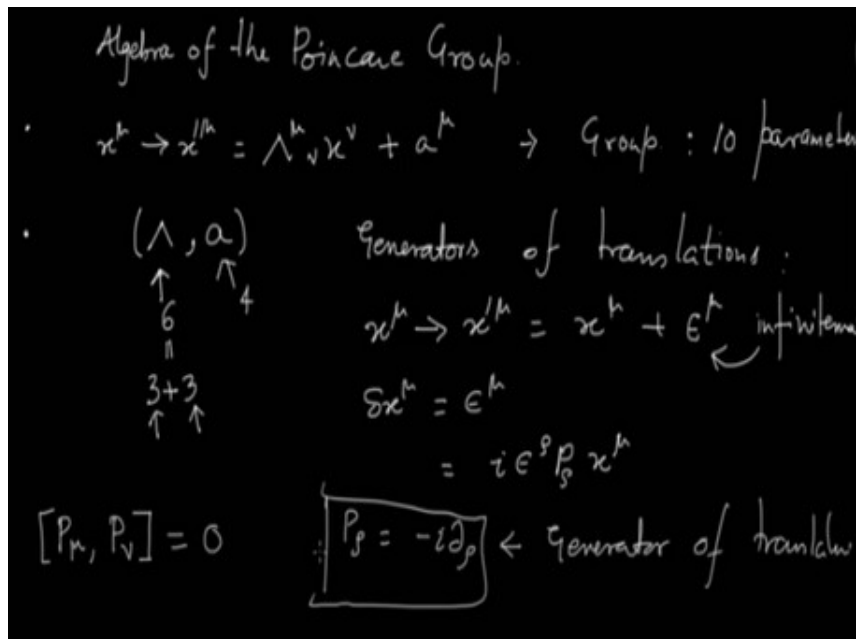 Algebra of the Poincare Group.
· x^μ → x'^μ = Λ^μ_ν x^ν + a^μ → Group : 10 parameter
· (Λ, a) Generators of translations :
↑ ↖ 4
6 x^μ → x'^μ = x^μ + ϵ^μ infinitema
॥
3+3 δx^μ = ϵ^μ
↑ ↑
= i ϵ^ρ P_ρ x^μ
[P_μ, P_ν] = 0 P_ρ = -i∂_ρ ← Generator of